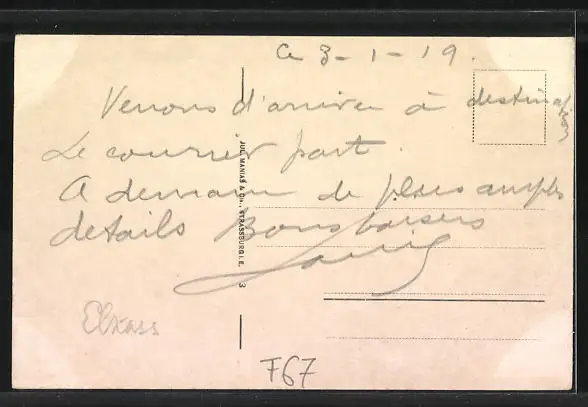 Ce 3-1-19.
Venons d'arriver à destination
Le courrier part.
A demain de plus amples
details Bons baisers
JUL. MANIAS & Cie., STRASSBURG I. E. 3
Elsass
F67